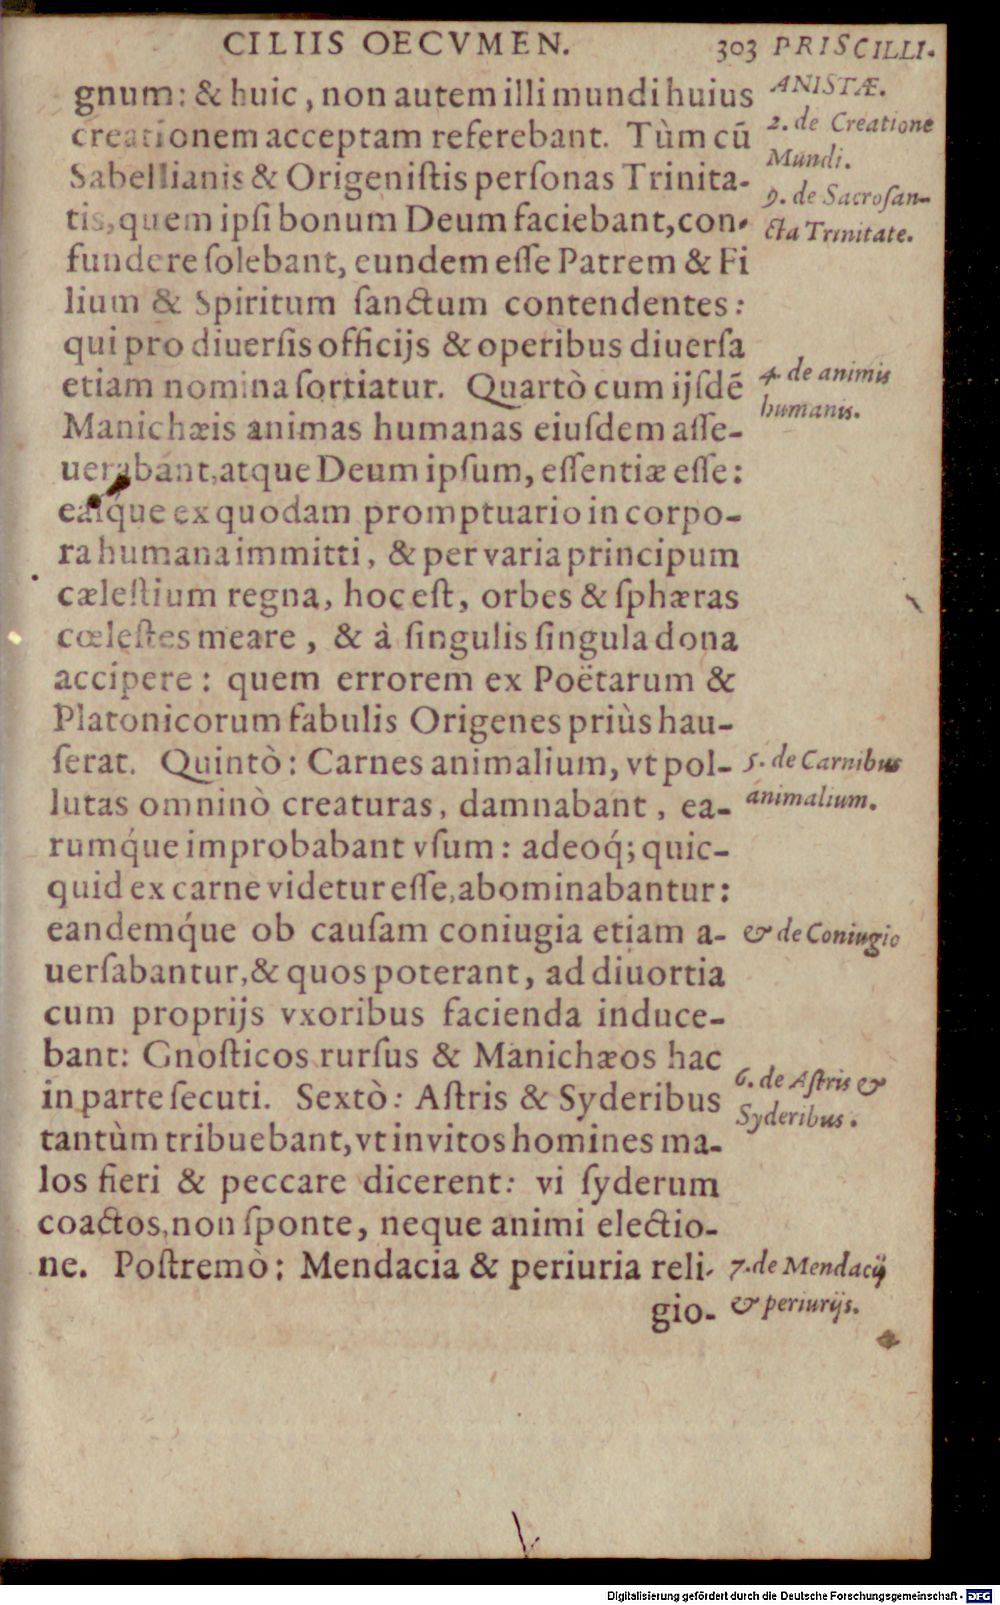 CILIIS OECVMEN. 303
gnum: & huic, non autem illi mundi huius
creationem acceptam referebant. Tùm cū
Sabellianis & Origeniſtis perſonas Trinita-
tis, quem ipſi bonum Deum faciebant, con-
fundere ſolebant, eundem eſſe Patrem & Fi
lium & Spiritum ſanctum contendentes:
qui pro diuerſis officijs & operibus diuerſa
etiam nomina ſortiatur. Quartò cum ijſdē
Manichæis animas humanas eiuſdem aſſe-
uerabant, atque Deum ipſum, eſſentiæ eſſe:
eaſq́ue ex quodam promptuario in corpo-
ra humana immitti, & per varia principum
cæleſtium regna, hoc eſt, orbes & ſphæras
cœleſtes meare, & à ſingulis ſingula dona
accipere: quem errorem ex Poëtarum &
Platonicorum fabulis Origenes priùs hau-
ſerat. Quintò: Carnes animalium, vt pol-
lutas omninò creaturas, damnabant, ea-
rumq́ue improbabant vſum: adeoq́; quic-
quid ex carne videtur eſſe, abominabantur:
eandemq́ue ob cauſam coniugia etiam a-
uerſabantur, & quos poterant, ad diuortia
cum proprijs vxoribus facienda induce-
bant: Gnoſticos rurſus & Manichæos hac
in parte ſecuti. Sextò: Aſtris & Syderibus
tantùm tribuebant, vt invitos homines ma-
los fieri & peccare dicerent: vi ſyderum
coactos, non ſponte, neque animi electio-
ne. Poſtremò: Mendacia & periuria reli-
gio-
PRISCILLI-
ANISTÆ.
2. de Creatione
Mundi.
9. de Sacroſan-
cta Trinitate.
4. de animis
humanis.
5. de Carnibus
animalium.
& de Coniugio
6. de Aſtris &
Syderibus.
7. de Mendacij
& periurijs.
Digitalisierung gefördert durch die Deutsche Forschungsgemeinschaft - DFG